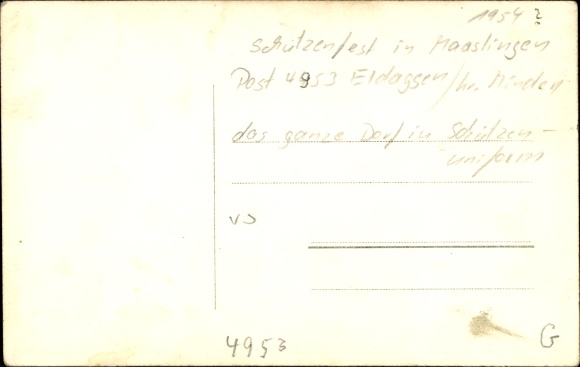 1954 ?
Schützenfest in Maaslingen
Post 4953 Eldagsen / kr. Minden
das ganze Dorf in Schützen-
uniform
VS
4953
G